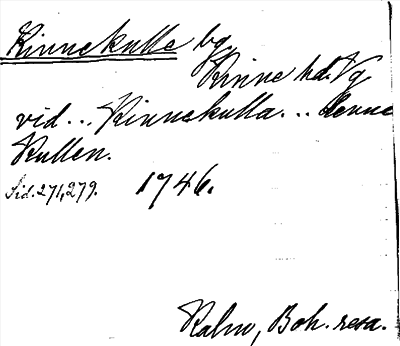 Kinnekulle bg
Kinne hd. Vg
vid... Kinnekulla... denne
Kullen.
Sid. 271, 279. 1746.
Kalm, Boh. resa.